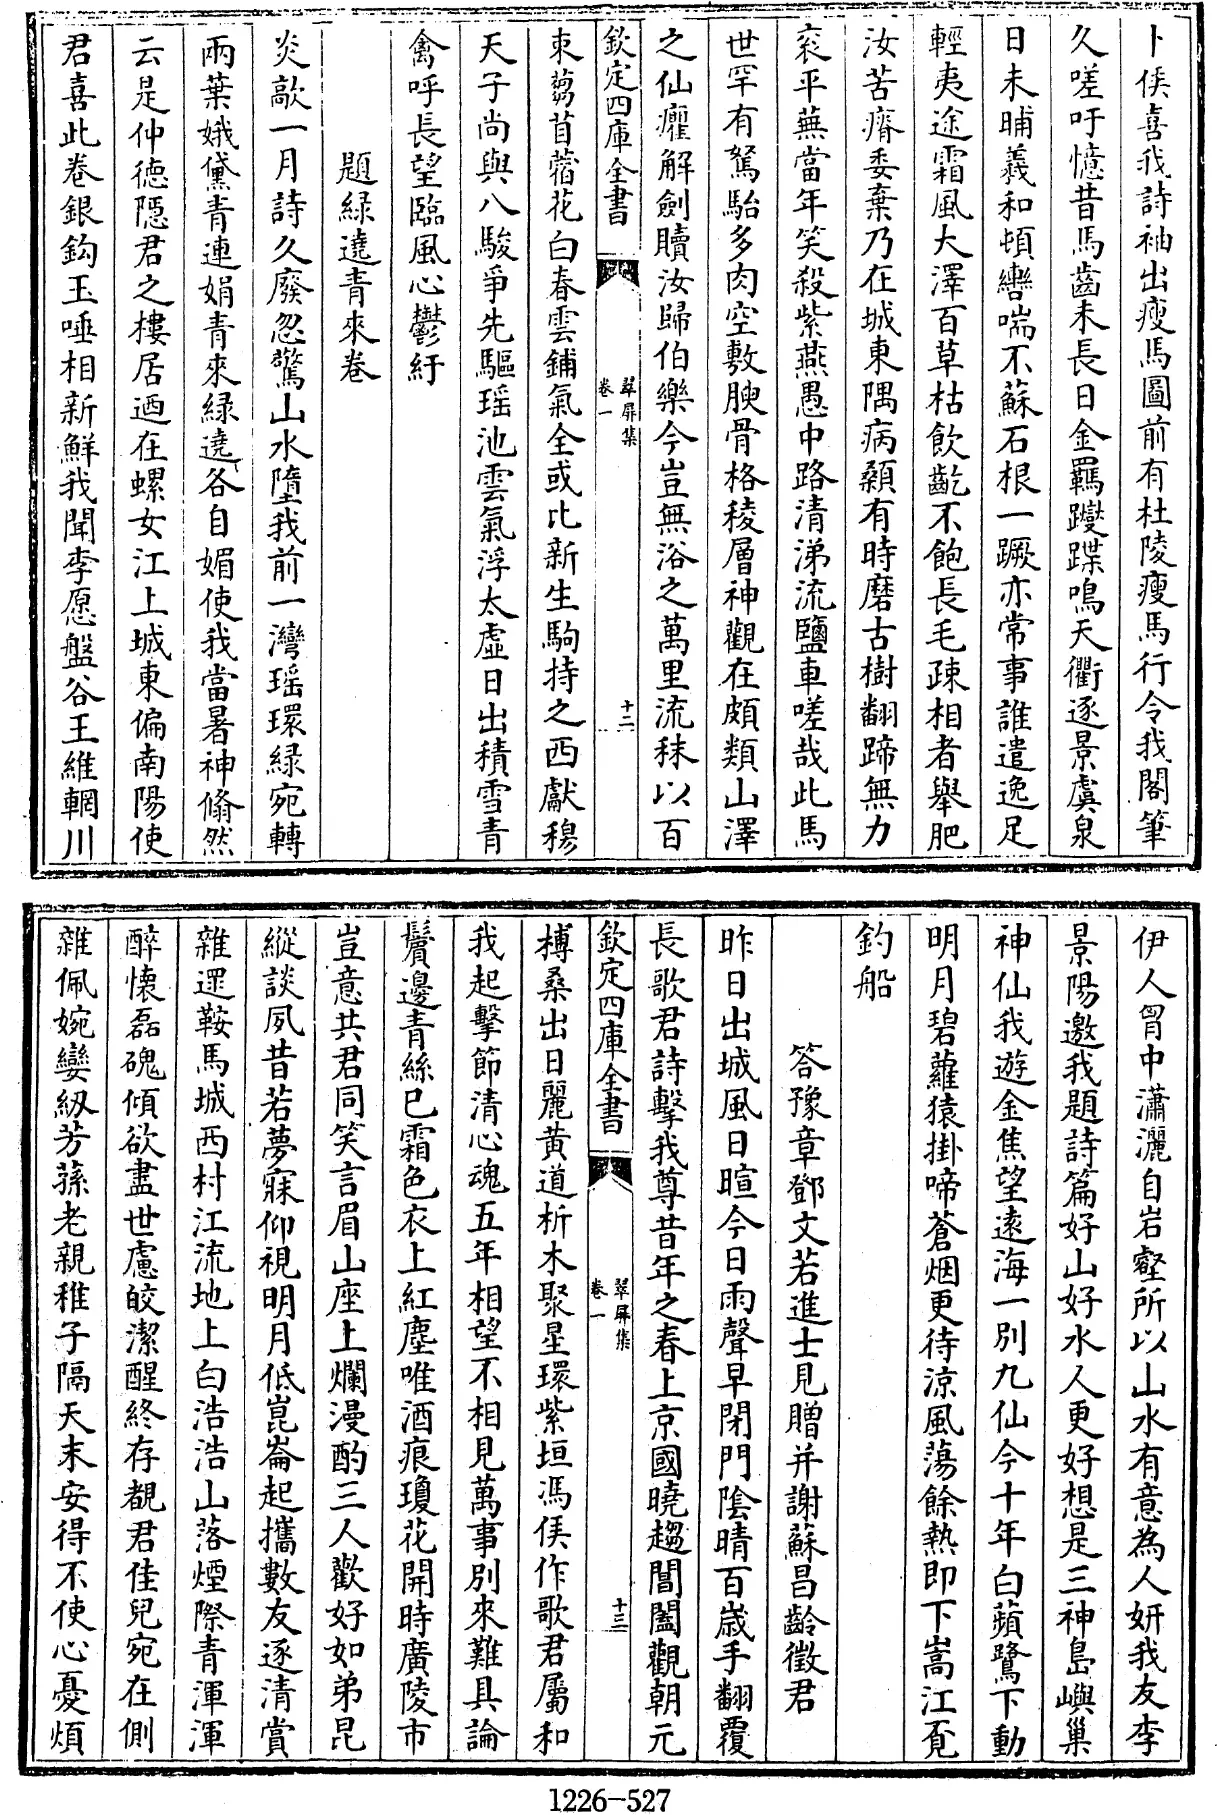 卜侯喜我詩袖出瘦馬圖前有杜陵瘦馬行令我閣筆
久嗟吁憶昔馬齒未長日金羈躞蹀鳴天衢逐景虞泉
日未晡羲和頓轡喘不蘇石根一蹶亦常事誰遣逸足
輕夷途霜風大澤百草枯飲齕不飽長毛疎相者舉肥
汝苦瘠委棄乃在城東隅病顙有時磨古樹翻蹄無力
衮平蕪當年笑殺紫燕愚中路清涕流鹽車嗟哉此馬
世罕有駑駘多肉空敷腴骨格稜層神觀在頗類山澤
之仙癯解劍贖汝歸伯樂今豈無浴之萬里流秣以百
欽定四庫全書
翠屏集
卷一
十二
束蒭苜蓿花白春雲鋪氣全或比新生駒持之西獻穆
天子尚與八駿爭先驅瑶池雲氣浮太虛日出積雪青
禽呼長望臨風心鬱紆
題緑遶青來卷
炎歊一月詩久廢忽驚山水墮我前一灣瑶環緑宛轉
兩葉娥黛青連娟青來緑遶各自媚使我當暑神翛然
云是仲徳隠君之樓居迺在螺女江上城東偏南陽使
君喜此卷銀鈎玉唾相新鮮我聞李愿盤谷王維輞川
伊人胷中瀟灑自岩壑所以山水有意為人妍我友李
景陽邀我題詩篇好山好水人更好想是三神島嶼巢
神仙我遊金焦望逺海一別九仙今十年白蘋鷺下動
明月碧蘿猿掛啼蒼烟更待涼風蕩餘熱即下嵩江覓
釣船
答豫章鄧文若進士見贈并謝蘇昌齡徵君
昨日出城風日暄今日雨聲早閉門陰晴百歳手翻覆
長歌君詩擊我尊昔年之春上京國曉趨閶闔觀朝元
欽定四庫全書
翠屏集
卷一
十三
榑桑出日麗黄道析木聚星環紫垣馮侯作歌君屬和
我起擊節清心魂五年相望不相見萬事別來難具論
鬢邊青絲已霜色衣上紅塵唯酒痕瓊花開時廣陵市
豈意共君同笑言眉山座上爛漫酌三人歡好如弟昆
縱談夙昔若夢寐仰視明月低崑崙起攜數友逐清賞
雜遝鞍馬城西村江流地上白浩浩山落煙際青渾渾
醉懷磊磈傾欲盡世慮皎潔醒終存覩君佳兒宛在側
雜佩婉孌紉芳蓀老親稚子隔天末安得不使心憂煩
1226-527